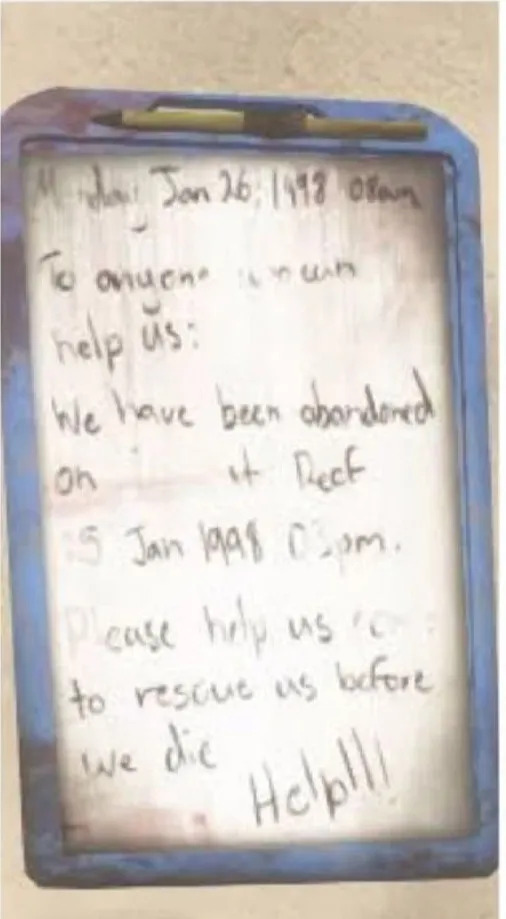 Monday Jan 26; 1998 08am
To anyone can
help us:
We have been abandoned
on Reef
Jan 1998 pm.
Please help us
to rescue us before
we die
Help!!!